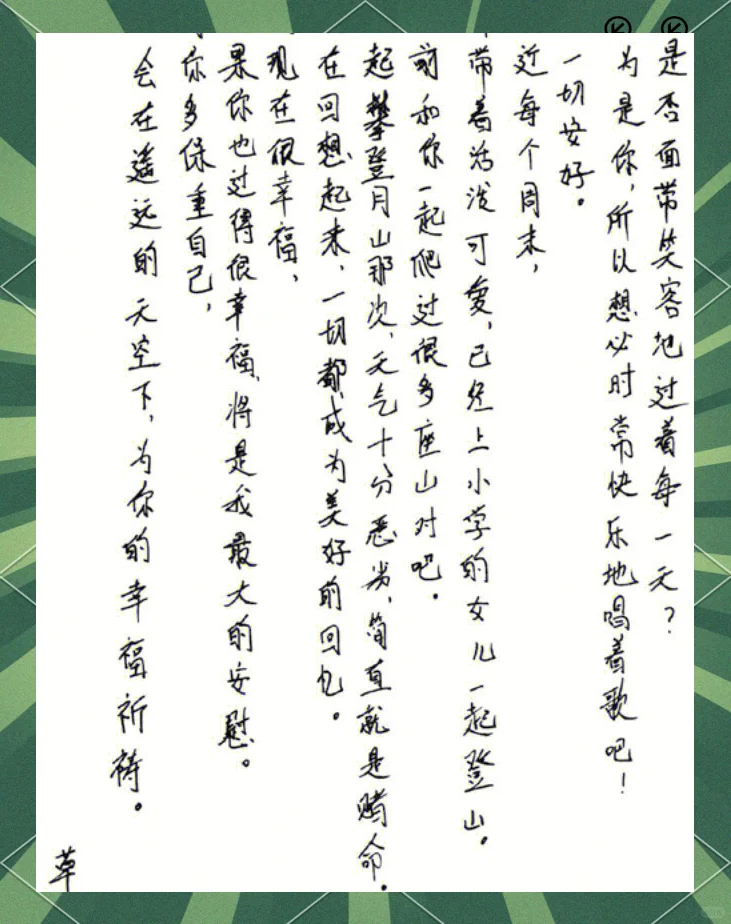 是否面带笑容地过着每一天?
为是你,所以想必时常快乐地唱着歌吧!
一切安好。
近每个周末,
带着活泼可爱,已经上小学的女儿一起登山。
前和你一起爬过很多座山对吧。
起攀登月山那次,天气十分恶劣,简直就是赌命。
在回想起来,一切都成为美好的回忆。
现在很幸福,
果你也过得很幸福,将是我最大的安慰。
你多保重自己,
会在遥远的天空下,为你的幸福祈祷。
草